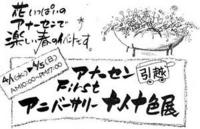 花いっぱいの
アナーセンで
楽しい春のイベントです。
4/1(水)〜4/5(日)
AM10:00〜PM7:00
アナーセン 引越
First
アニバーサリー 十人十色展